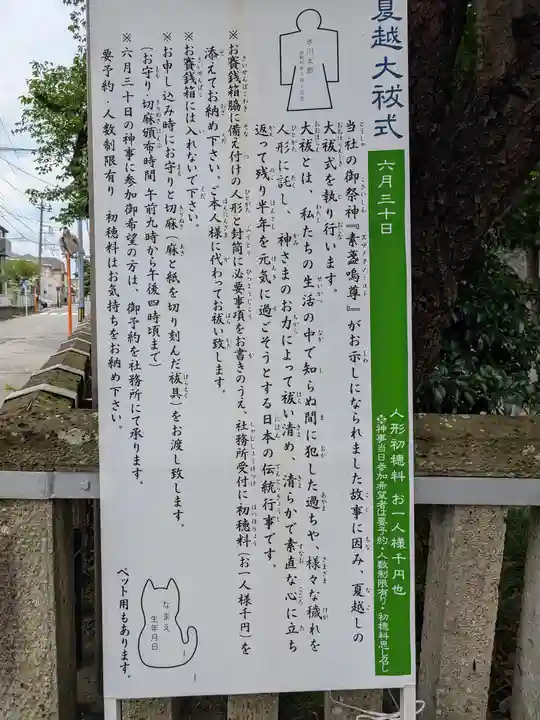 夏越大祓式
六月三十日
人形初穂料 お一人様千円也
※神事当日参加希望者は要予約・人数制限有り・初穂料思し召し
氷川太郎
当社の御祭神『素盞嗚尊』がお示しになられました故事に因み、夏越しの
大祓式を執り行います。
大祓とは、私たちの生活の中で知らぬ間に犯した過ちや、様々な穢れを
人形に託し、神さまのお力によって祓い清め、清らかで素直な心に立ち
返って残り半年を元気に過ごそうとする日本の伝統行事です。
※お賽銭箱脇に備え付けの人形と封筒に必要事項をお書きのうえ、社務所受付に初穂料（お一人様千円）を
添えてお納め下さい。ご本人様に代わってお祓い致します。
※お賽銭箱には入れないで下さい。
※お申し込み時にお守りと切麻（麻と紙を切り刻んだ祓具）をお渡し致します。
（お守り・切麻頒布時間 午前九時から午後四時頃まで）
※六月三十日の神事に参加御希望の方は、御予約を社務所にて承ります。
要予約・人数制限有り 初穂料はお気持ちをお納め下さい。
なまえ
生年月日
ペット用もあります。